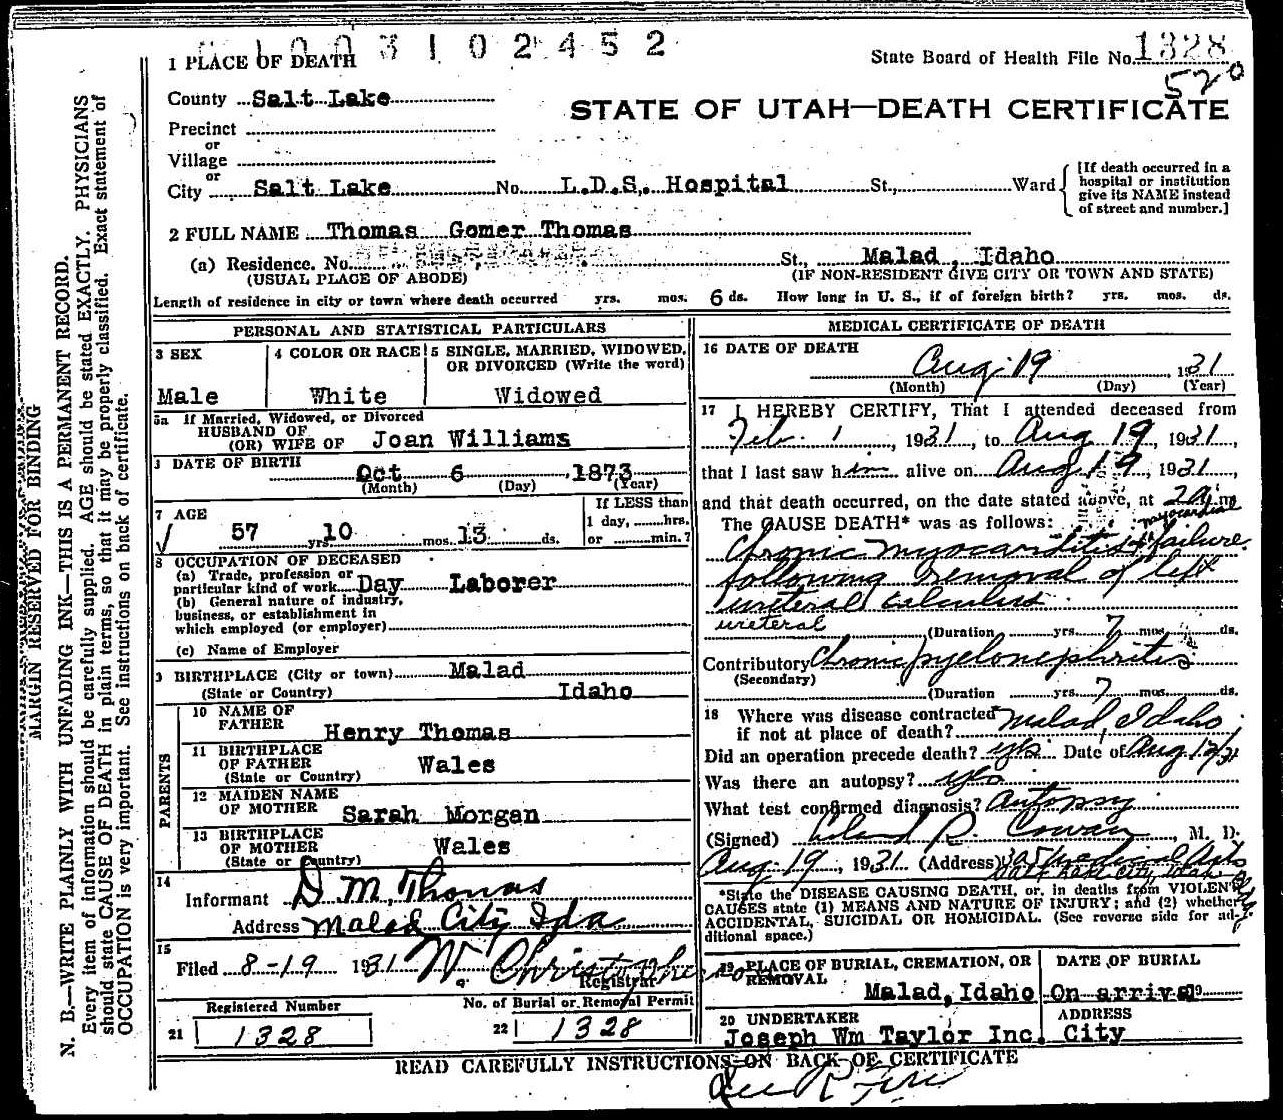 1003102452
1 PLACE OF DEATH
State Board of Health File No. 1328
520
County Salt Lake
STATE OF UTAH—DEATH CERTIFICATE
Precinct
or
Village
or
City Salt Lake No. L.D.S. Hospital St., Ward
[If death occurred in a
hospital or institution
give its NAME instead
of street and number.]
2 FULL NAME Thomas Gomer Thomas
(a) Residence. No. St., Malad, Idaho
(USUAL PLACE OF ABODE) (IF NON-RESIDENT GIVE CITY OR TOWN AND STATE)
Length of residence in city or town where death occurred yrs. mos. 6 ds. How long in U. S., if of foreign birth? yrs. mos. ds.
PERSONAL AND STATISTICAL PARTICULARS
3 SEX
Male
4 COLOR OR RACE
White
5 SINGLE, MARRIED, WIDOWED,
OR DIVORCED (Write the word)
Widowed
5a If Married, Widowed, or Divorced
HUSBAND OF
(OR) WIFE OF Joan Williams
DATE OF BIRTH
Oct 6 1873
(Month) (Day) (Year)
7 AGE
57 yrs. 10 mos. 13 ds.
If LESS than
1 day, hrs.
or min.?
8 OCCUPATION OF DECEASED
(a) Trade, profession or
particular kind of work Day Laborer
(b) General nature of industry,
business, or establishment in
which employed (or employer)
(c) Name of Employer
9 BIRTHPLACE (City or town) Malad
(State or Country) Idaho
PARENTS
10 NAME OF
FATHER Henry Thomas
11 BIRTHPLACE
OF FATHER Wales
(State or Country)
12 MAIDEN NAME
OF MOTHER Sarah Morgan
13 BIRTHPLACE
OF MOTHER Wales
(State or Country)
14
Informant D. M. Thomas
Address Malad City Ida
15
Filed 8-19 1931 W. Christopherson
Registrar
Registered Number
21 1328
No. of Burial or Removal Permit
22 1328
MEDICAL CERTIFICATE OF DEATH
16 DATE OF DEATH
Aug. 19, 1931
(Month) (Day) (Year)
17 I HEREBY CERTIFY, That I attended deceased from
Feb. 1, 1931, to Aug 19, 1931,
that I last saw him alive on Aug 19, 1931,
and that death occurred, on the date stated above, at 2 a. m
The CAUSE DEATH* was as follows: myocardial
Chronic myocarditis & failure
following removal of left
ureteral calculus.
ureteral
(Duration yrs. 7 mos. ds.
Contributory Chronic pyelonephritis
(Secondary)
(Duration yrs. 7 mos. ds.
18 Where was disease contracted
if not at place of death? Malad, Idaho
Did an operation precede death? yes. Date of Aug. 13/31
Was there an autopsy? yes
What test confirmed diagnosis? Autopsy
(Signed) Leland R. Cowan, M. D.
Aug. 19, 1931 (Address) 305 Medical Arts
*State the DISEASE CAUSING DEATH, or, in deaths from VIOLENT
CAUSES state (1) MEANS AND NATURE OF INJURY; and (2) whether
ACCIDENTAL, SUICIDAL OR HOMICIDAL. (See reverse side for ad-
ditional space.)
19 PLACE OF BURIAL, CREMATION, OR
REMOVAL
Malad, Idaho
DATE OF BURIAL
On arrival 19
20 UNDERTAKER
Joseph Wm Taylor Inc.
ADDRESS
City
READ CAREFULLY INSTRUCTIONS ON BACK OF CERTIFICATE
MARGIN RESERVED FOR BINDING
N. B.—WRITE PLAINLY WITH UNFADING INK—THIS IS A PERMANENT RECORD.
Every item of information should be carefully supplied. AGE should be stated EXACTLY. PHYSICIANS
should state CAUSE OF DEATH in plain terms, so that it may be properly classified. Exact statement of
OCCUPATION is very important. See instructions on back of certificate.